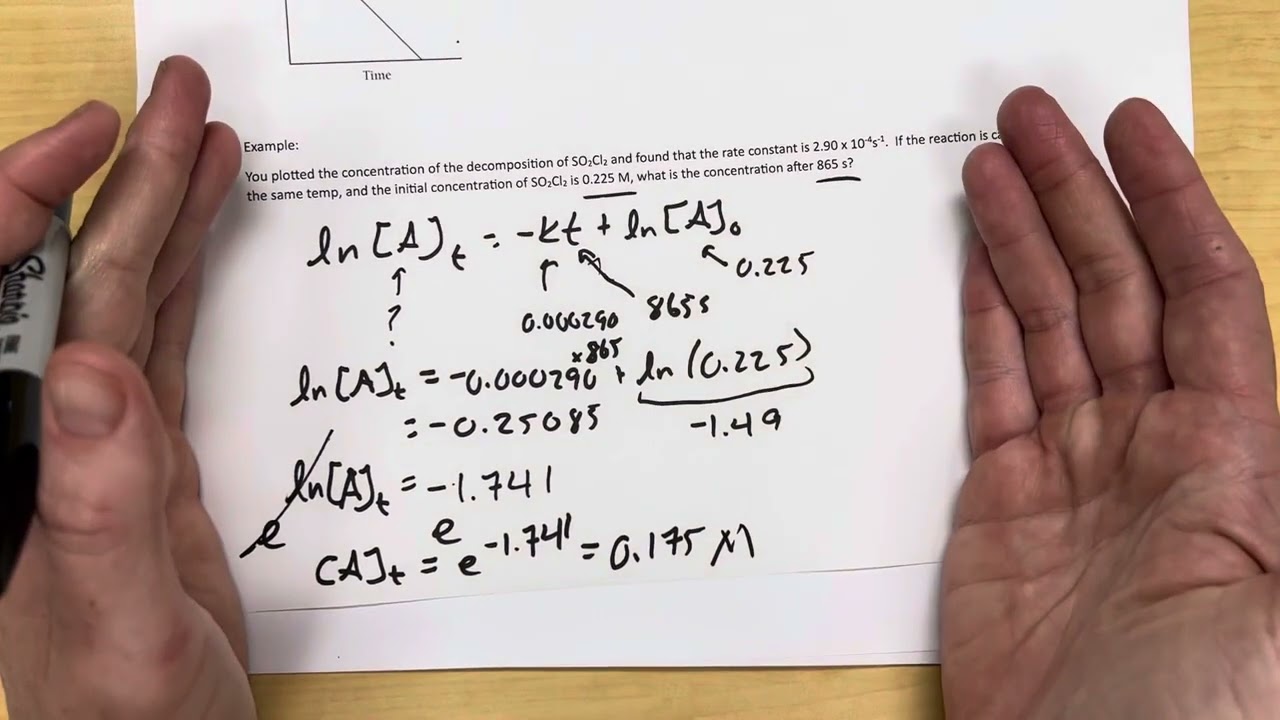 Time
Example:
You plotted the concentration of the decomposition of SO₂Cl₂ and found that the rate constant is 2.90 x 10⁻⁴s⁻¹. If the reaction is
the same temp, and the initial concentration of SO₂Cl₂ is 0.225 M, what is the concentration after 865 s?
ln[A]ₜ = -kt + ln[A]₀
↑ ↑ ↖ ↖ 0.225
? 0.000290 865s
×865
ln[A]ₜ = -0.000290 + ln(0.225)
= -0.25085 -1.49
ln[A]ₜ = -1.741
e e
[A]ₜ = e^-1.741 = 0.175 M
Sharpie